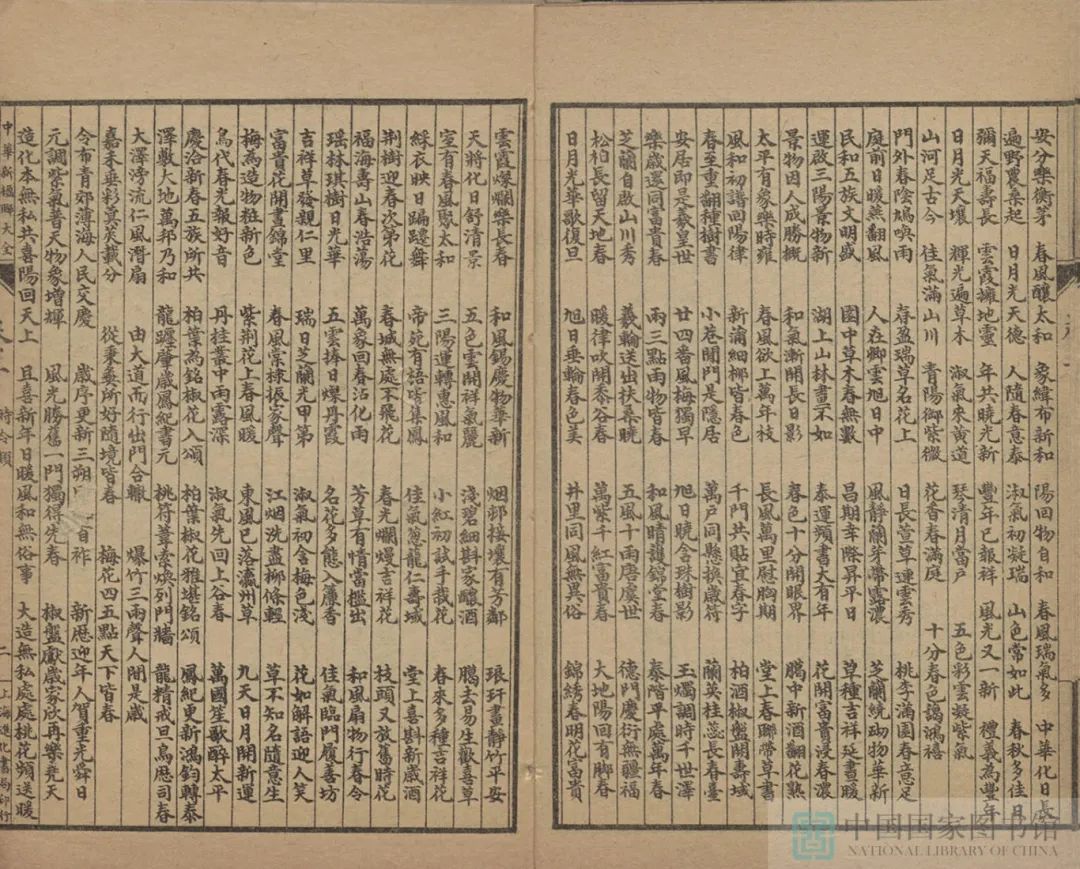 安分樂衡茅 春風釀太和 象緯布新和 陽回物自和 春風瑞氣多 中華化日長
遍野農桑起 日月光天德 人隨春意泰 淑氣初凝瑞 山色常如此 春秋多佳日
彌天福壽長 雲霞擁地靈 年共曉光新 豐年已報祥 風光又一新 禮義為豐年
日月光天壤 輝光遍草木 淑氣來黃道 琴清月當戶 五色彩雲凝紫氣
山河足古今 佳氣滿山川 青陽御紫微 花香春滿庭 十分春色靄鴻禧
門外春陰鳩喚雨 春盈瑞草名花上 日長萱草連雲秀 桃李滿園春意足
庭前日暖燕翻風 人在卿雲旭日中 風靜蘭芽帶露濃 芝蘭繞砌物華新
民和五族文明盛 園中草木春無數 昌期幸際昇平日 草種吉祥延晝暖
運啟三陽景物新 湖上山林畫不如 泰運頻書大有年 花開富貴浸春濃
景物因人成勝概 和氣漸開長日影 春色十分開眼界 臘中新酒翻花熟
太平有象樂時雍 春風欲上萬年枝 長風萬里慰胸期 堂上春聯帶草書
風和初譜回陽律 新蒲細柳皆春色 千門共貼宜春字 柏酒椒盤開壽域
春至重翻種樹書 小巷閒門是隱居 萬戶同懸換歲符 蘭英桂蕊長春臺
安居即是羲皇世 廿四番風梅獨早 旭日曉含珠樹影 玉燭調時千世澤
樂歲還同富貴春 兩三點雨物皆春 和風晴護錦堂春 泰階平處萬年春
芝蘭自啟山川秀 羲輪送出扶桑曉 五風十雨唐虞世 德門慶衍無疆福
松柏長留天地春 暖律吹開黍谷春 萬紫千紅富貴春 大地陽回有腳春
日月光華歌復旦 旭日垂輪春色美 井里同風無異俗 錦綉春明花富貴
雲霞爛熳樂長春 和風錫慶物華新 烟邨接壤有芳鄰 琅玕晝靜竹平安
天將化日舒清景 五色雲開祥氣麗 淺碧細斟家釀酒 臘去易生歡喜草
室有春風聚太和 三陽運轉惠風和 小紅初試手栽花 春來多種吉祥花
綵衣映日蹁躚舞 帝苑有梧啼集鳳 佳氣蔥蘢仁壽域 堂上喜斟新歲酒
荆樹迎春次第花 春城無處不飛花 春光爛熳吉祥花 枝頭又放舊時花
福海壽山春浩蕩 萬象回春沾化雨 芳草有情當檻出 和風扇物行春令
瑶林琪樹日光華 五雲捧日爍丹霞 名花多態入簾香 佳氣臨門履善坊
吉祥草發親仁里 瑞日芝蘭光甲第 淑氣初含梅色淺 花如解語迎人笑
富貴花開書錦堂 春風棠棣振家聲 江烟洗盡柳條輕 草不知名隨意生
梅為造物粧新色 紫荆花上春風暖 東風已落瀛州草 九天日月開新運
鳥代春光報好音 丹桂叢中雨露深 淑氣先回上谷春 萬國笙歌醉太平
慶洽新春五族所共 柏葉為銘椒花入頌 柏葉椒花雅堪銘頌 鳳紀更新鴻鈞轉泰
澤敷大地萬邦乃和 龍躔肇歲鳳紀書元 桃符葦索煥列門牆 龍精戒旦鳥歷司春
大澤滂流仁風滑扇 由大道而行出門合轍 爆竹三兩聲人間是歲
嘉禾垂彩蓂莢載分 從秉彝所好隨境皆春 梅花四五點天下皆春
令布青郊薄海人民交慶 歲序更新三朔百祚 新歷迎年人賀重光舜日
元調紫氣普天物象增輝 風光勝舊一門獨得先春 椒盤獻歲家欣再樂堯天
造化本無私共喜陽回天上 且喜新年日暖風和無俗事 大造無私處處桃花頻送暖
中華新楹聯大全 時令類 二 上海進化書局印行
中国国家图书馆
NATIONAL LIBRARY OF CHINA